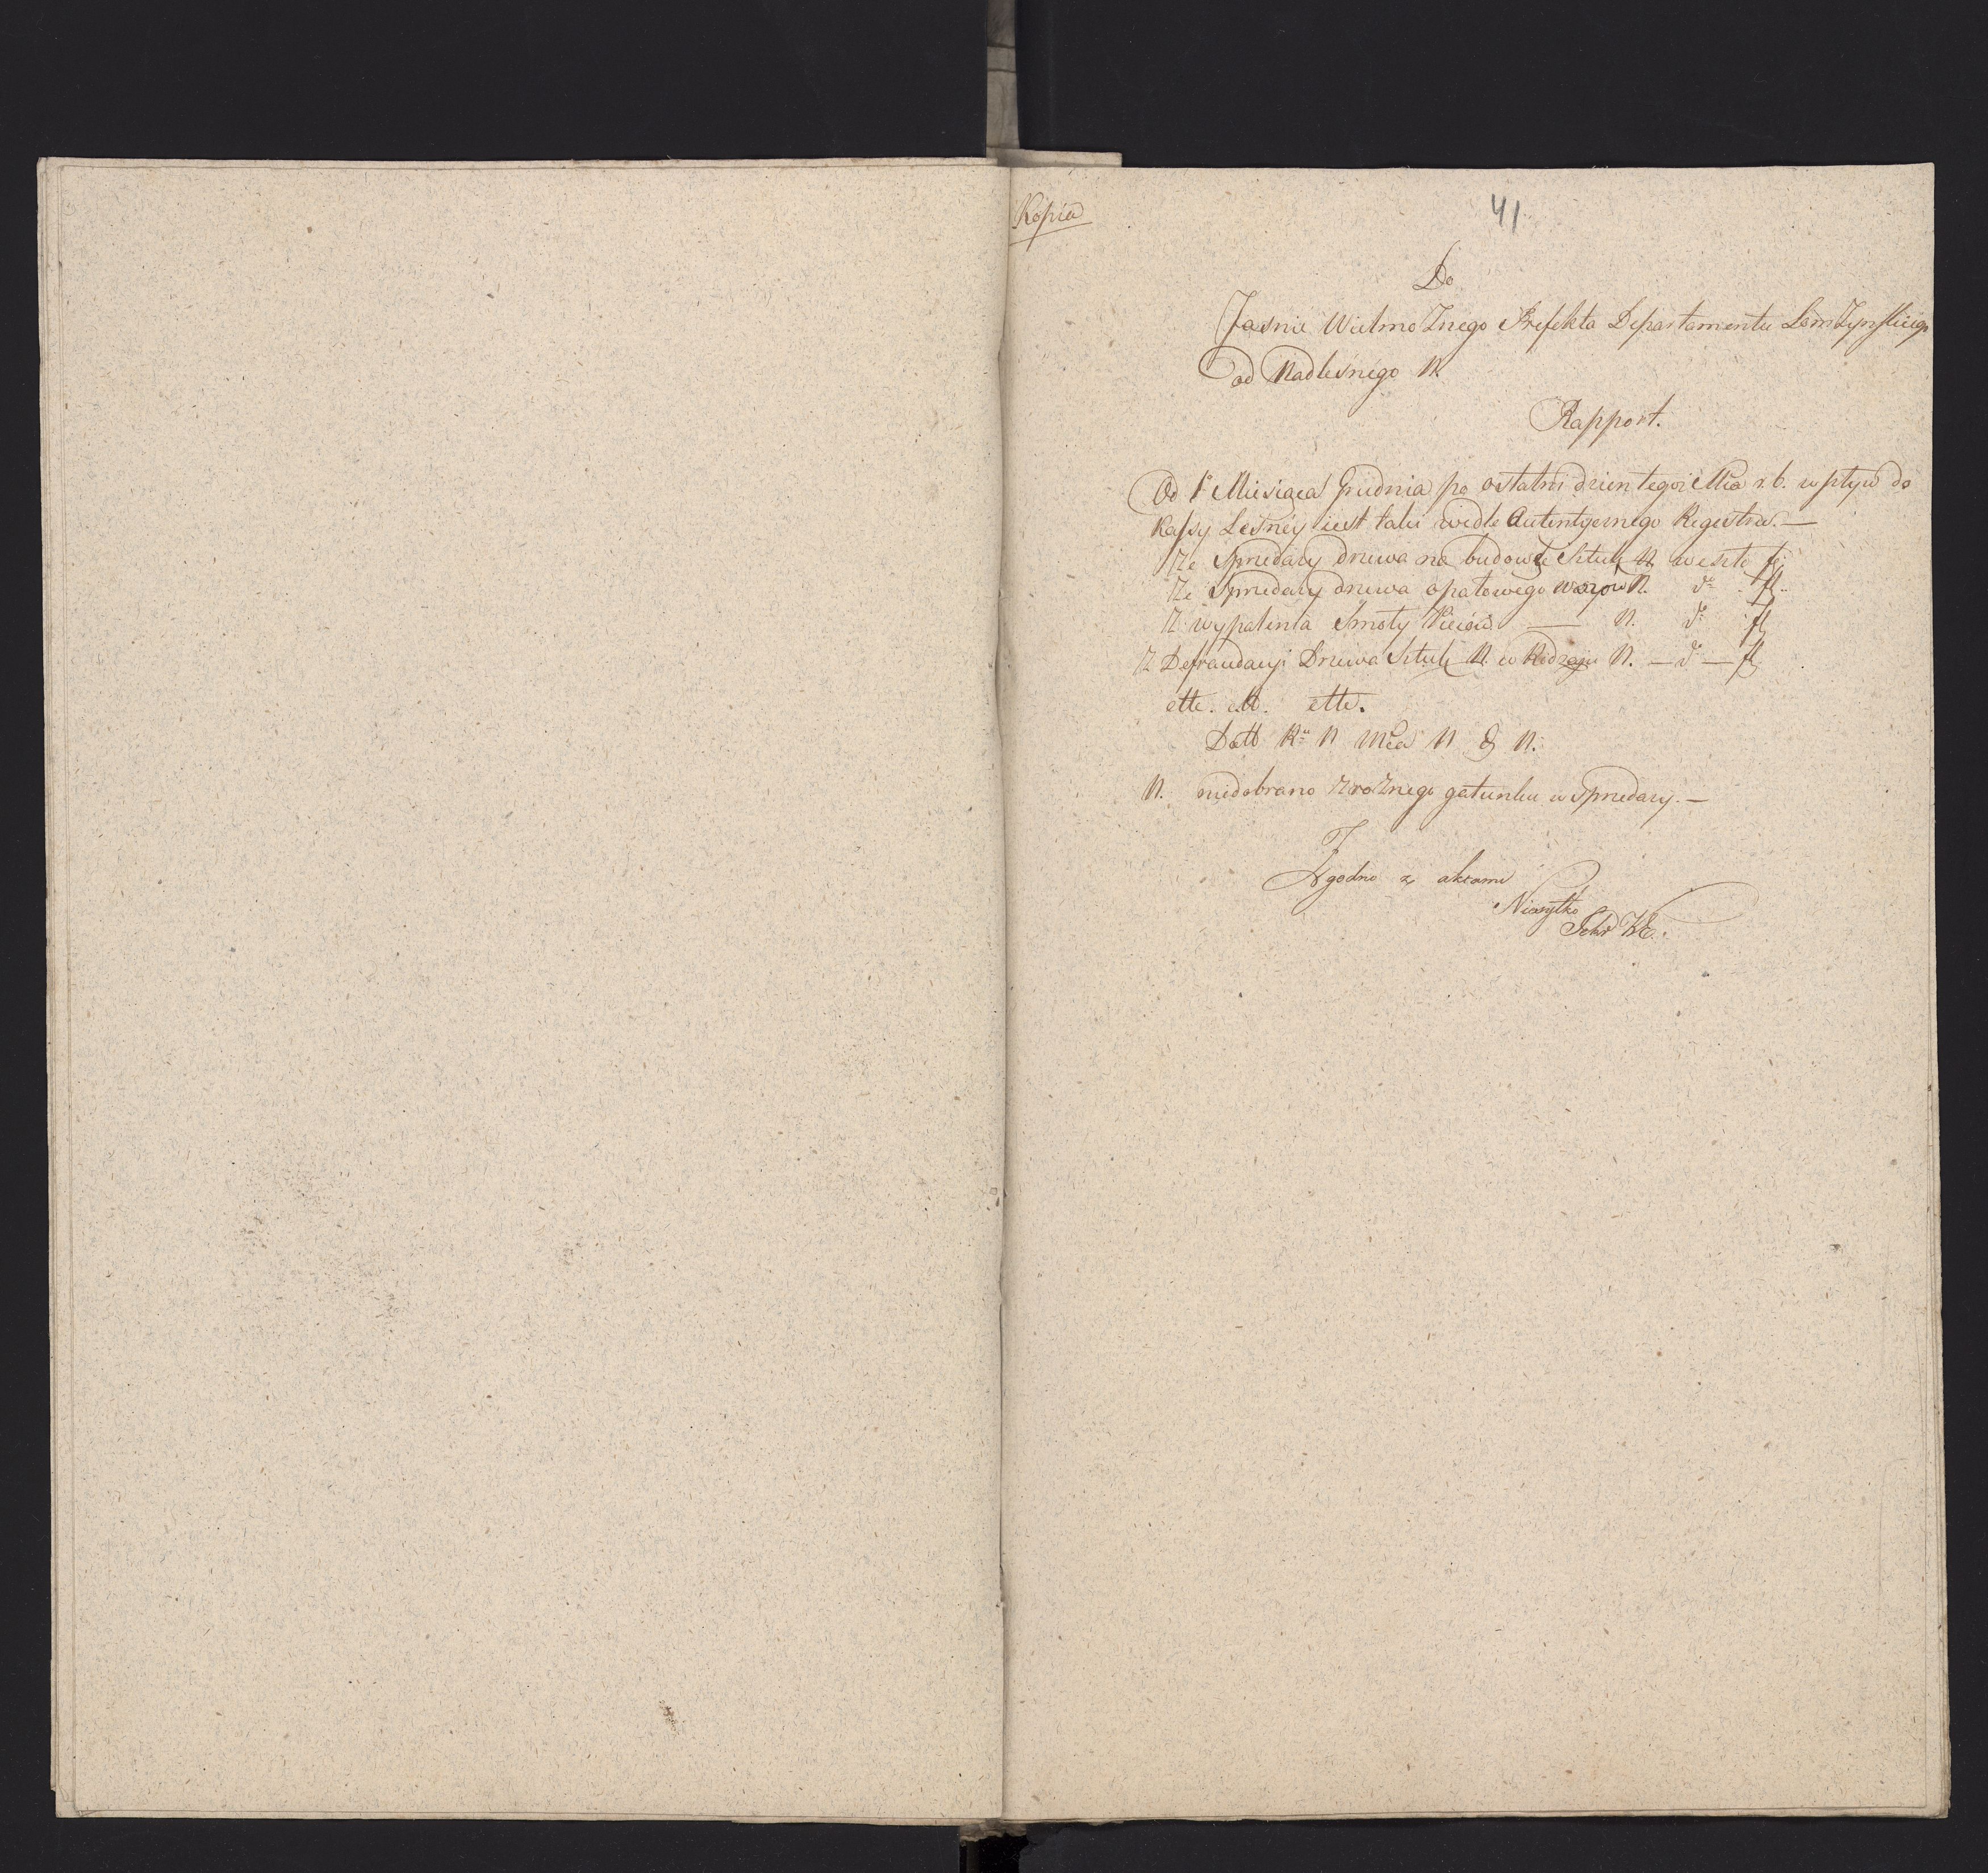 Kopia
41
Do
Jaśnie WielmoZnego Prefekta Departamentu LomZynskiego
od Nadleśnégo N.
Rapport.
Od 1o Miesiąca Grudnia po ostatni dzien tegoż Mca r. b. wpływ do
Kassy Leśnéy iest taki wedle Autentycznego Regestru. —
Ze Sprzedaży drzewa na budowlę Sztuk N. weszło fl.
Ze Sprzedaży drzewa opałowego wozów N. do fl.
Z wypalenia Smoły Pieców — N. do fl.
Z Defraudacyi Drzewa Sztuk N. w Rodzaju N. — do — fl.
ettc. ettc. ettc.
Datt Ru N Mca N D N.
N. niedobrano z roZnego gatunku w Sprzedaży. —
Zgodno z aktami
Sekr